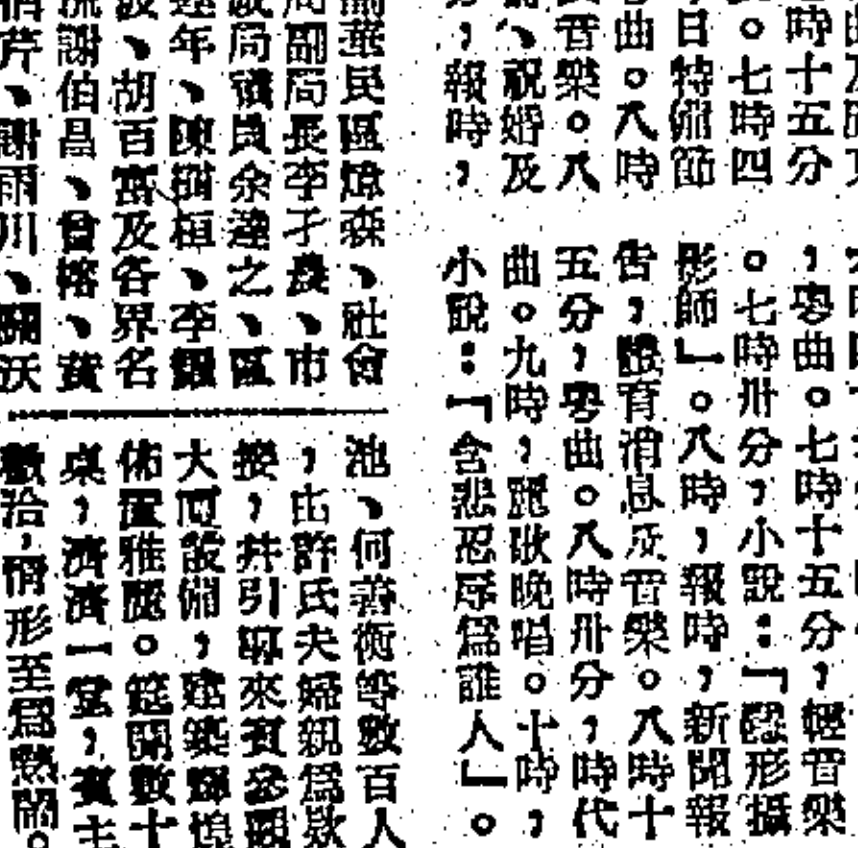 時十五分
。七時四
日特備節
曲。八時
音樂。八
、祝婚及
，報時，
，粵曲。七時十五分，輕音樂
。七時卅分，小說：「隱形攝
影師」。八時，報時，新聞報
告，體育消息及音樂。八時十
五分，粵曲。八時卅分，時代
曲。九時，麗歌晚唱。十時，
小說：「含悲忍辱爲誰人」。
華民區煒森、社會
局副局長李孑農、市
政局議員余達之、區
達年、陳樹桓、李
、胡百富及各界名
流謝伯昌、曾榕、黃
芹、謝雨川、關沃
池、何善衡等數百人
，由許氏夫婦親爲款
接，并引導來賓參觀
大厦設備，建築輝煌
佈置雅麗。筵開數十
桌，濟濟一堂，賓主
歡洽，情形至爲熱鬧。